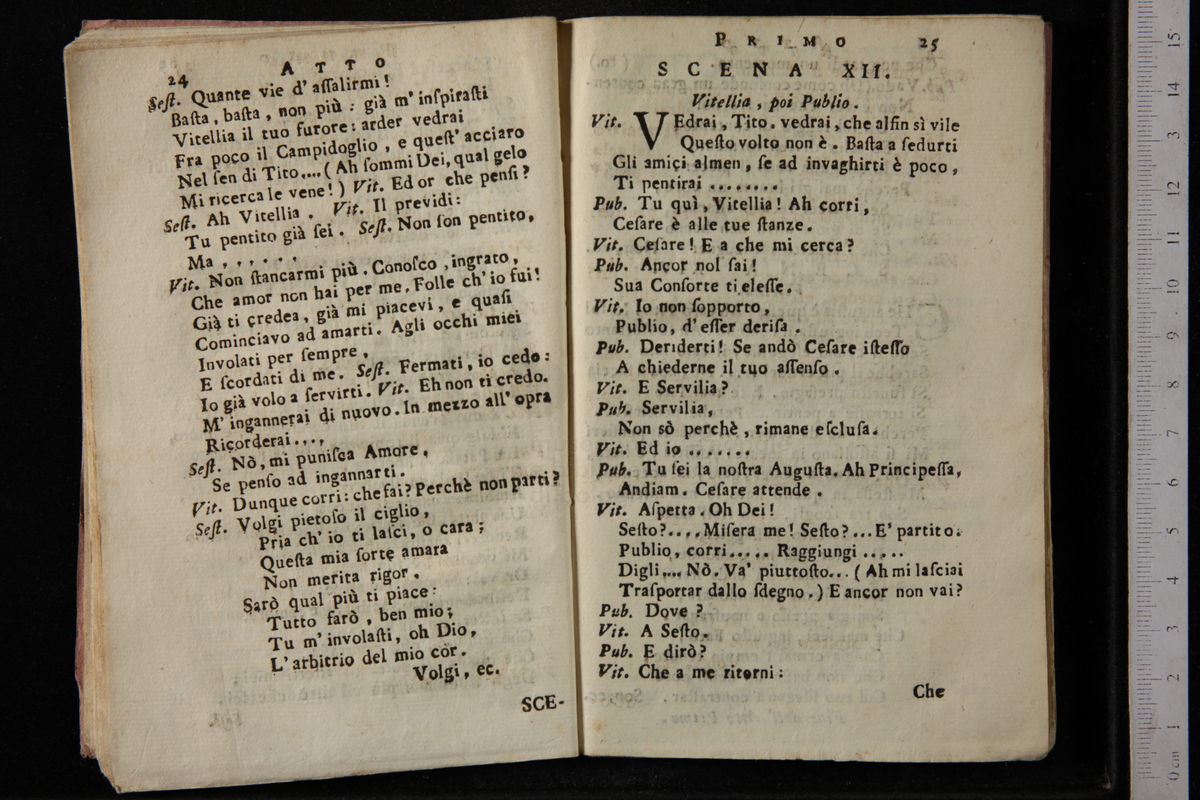 24
ATTO
Seſt. Quante vie d' aſſalirmi!
Baſta, baſta, non più: già m' inſpiraſti
Vitellia il tuo furore: arder vedrai
Fra poco il Campidoglio, e queſt' acciaro
Nel ſen di Tito.... (Ah ſommi Dei, qual gelo
Mi ricerca le vene!) Vit. Ed or che penſi?
Seſt. Ah Vitellia. Vit. Il previdi:
Tu pentito già ſei. Seſt. Non ſon pentito,
Ma . . . . . .
Vit. Non ſtancarmi più. Conoſco, ingrato,
Che amor non hai per me. Folle ch' io fui!
Già ti credea, già mi piacevi, e quaſi
Cominciavo ad amarti. Agli occhi miei
Involati per ſempre,
E ſcordati di me. Seſt. Fermati, io cedo:
Io già volo a ſervirti. Vit. Eh non ti credo.
M' ingannerai di nuovo. In mezzo all' opra
Ricorderai....
Seſt. Nò, mi puniſca Amore,
Se penſo ad ingannarti.
Vit. Dunque corri: che fai? Perchè non parti?
Seſt. Volgi pietoſo il ciglio,
Pria ch' io ti laſci, o cara;
Queſta mia ſorte amara
Non merita rigor.
Sarò qual più ti piace:
Tutto farò, ben mio;
Tu m' involaſti, oh Dio,
L' arbitrio del mio cor.
Volgi, ec.
SCE-
PRIMO
25
SCENA XII.
Vitellia, poi Publio.
Vit. VEdrai, Tito, vedrai, che alfin sì vile
Queſto volto non è. Baſta a ſedurti
Gli amici almen, ſe ad invaghirti è poco,
Ti pentirai ........
Pub. Tu quì, Vitellia! Ah corri,
Ceſare è alle tue ſtanze.
Vit. Ceſare! E a che mi cerca?
Pub. Ancor nol ſai!
Sua Conſorte ti eleſſe.
Vit. Io non ſopporto,
Publio, d' eſſer deriſa.
Pub. Deriderti! Se andò Ceſare iſteſſo
A chiederne il tuo aſſenſo.
Vit. E Servilia?
Pub. Servilia,
Non sò perchè, rimane eſcluſa.
Vit. Ed io .......
Pub. Tu ſei la noſtra Auguſta. Ah Principeſſa,
Andiam. Ceſare attende.
Vit. Aſpetta. Oh Dei!
Seſto?.... Miſera me! Seſto?... E' partito.
Publio, corri..... Raggiungi .....
Digli.... Nò. Va' piuttoſto... (Ah mi laſciai
Traſportar dallo ſdegno.) E ancor non vai?
Pub. Dove?
Vit. A Seſto.
Pub. E dirò?
Vit. Che a me ritorni:
Che